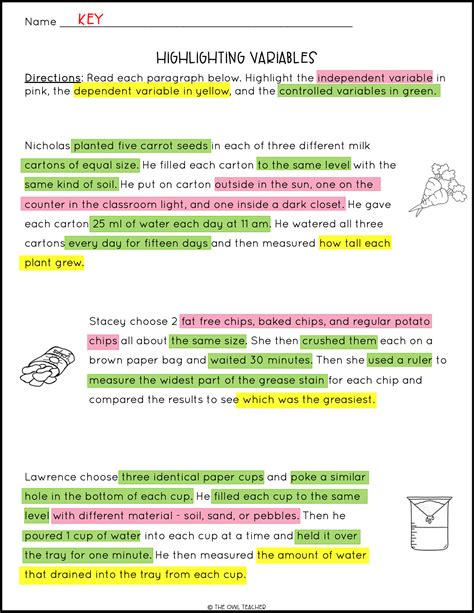 Name KEY
HIGHLIGHTING VARIABLES
Directions: Read each paragraph below. Highlight the independent variable in
pink, the dependent variable in yellow, and the controlled variables in green.
Nicholas planted five carrot seeds in each of three different milk
cartons of equal size. He filled each carton to the same level with the
same kind of soil. He put on carton outside in the sun, one on the
counter in the classroom light, and one inside a dark closet. He gave
each carton 25 ml of water each day at 11 am. He watered all three
cartons every day for fifteen days and then measured how tall each
plant grew.
Stacey choose 2 fat free chips, baked chips, and regular potato
chips all about the same size. She then crushed them each on a
brown paper bag and waited 30 minutes. Then she used a ruler to
measure the widest part of the grease stain for each chip and
compared the results to see which was the greasiest.
Lawrence choose three identical paper cups and poke a similar
hole in the bottom of each cup. He filled each cup to the same
level with different material - soil, sand, or pebbles. Then he
poured 1 cup of water into each cup at a time and held it over
the tray for one minute. He then measured the amount of water
that drained into the tray from each cup.
© THE OWL TEACHER